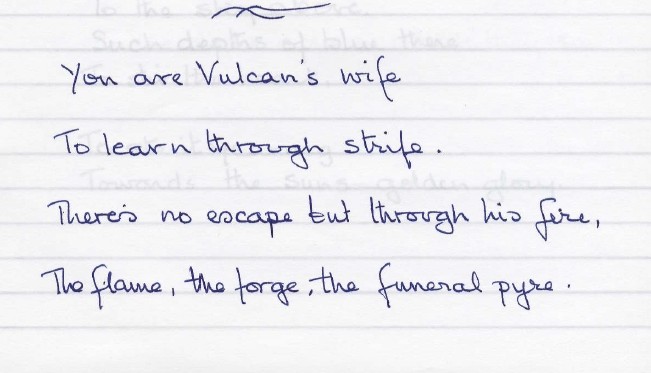 You are Vulcan's wife
To learn through strife.
There's no escape but through his fire,
The flame, the forge, the funeral pyre.